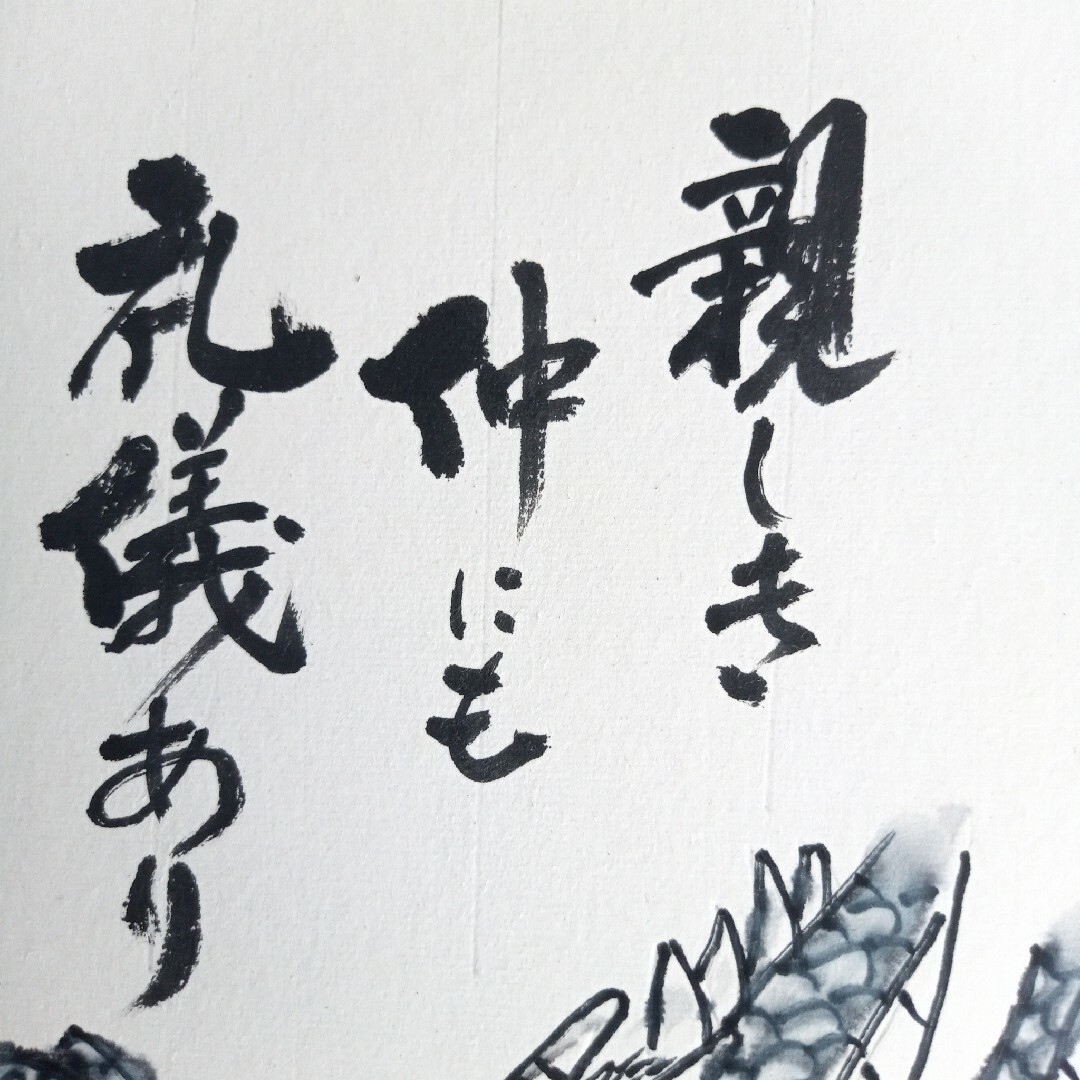 親しき
仲にも
礼儀あり